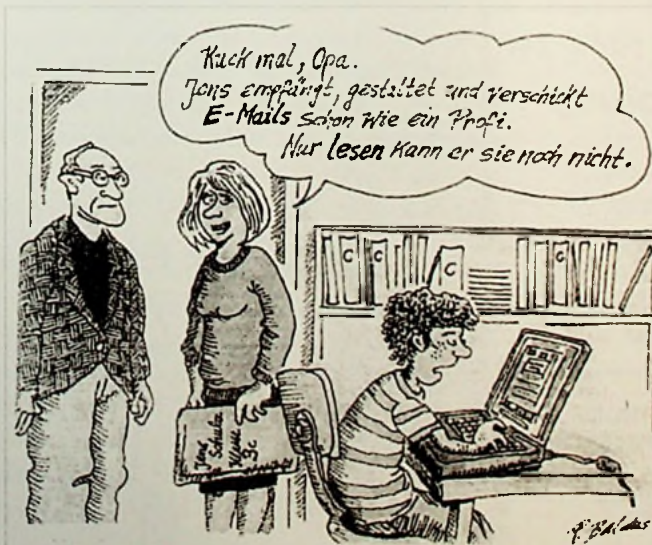 Kuck mal, Opa.
Jens empfängt, gestaltet und verschickt
E-Mails schon wie ein Profi.
Nur lesen kann er sie noch nicht.
Jens
Schulz
Klasse
3c
G
G
G
G